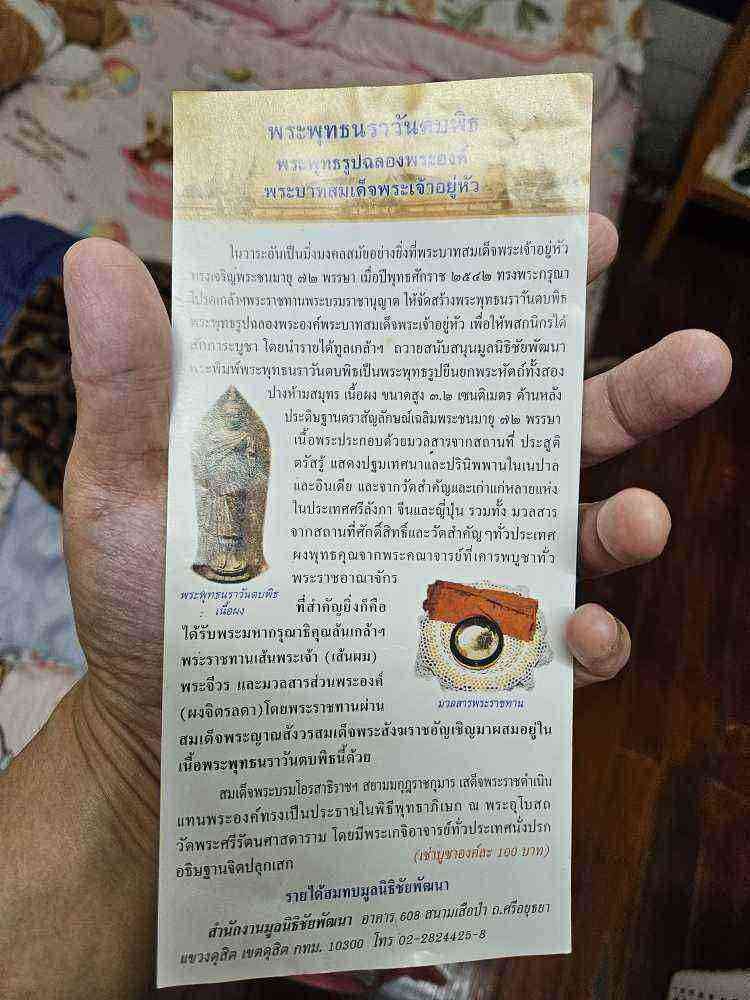 พระพุทธนราวันตบพิธ
พระพุทธรูปฉลองพระองค์
พระบาทสมเด็จพระเจ้าอยู่หัว
ในวาระอันเป็นมิ่งมงคลสมัยอย่างยิ่งที่พระบาทสมเด็จพระเจ้าอยู่หัว
ทรงเจริญพระชนมายุ ๗๒ พรรษา เมื่อปีพุทธศักราช ๒๕๔๒ ทรงพระกรุณา
โปรดเกล้าฯพระราชทานพระบรมราชานุญาต ให้จัดสร้างพระพุทธนราวันตบพิธ
พระพุทธรูปฉลองพระองค์พระบาทสมเด็จพระเจ้าอยู่หัว เพื่อให้พสกนิกรได้
สักการะบูชา โดยนำรายได้ทูลเกล้าฯ ถวายสนับสนุนมูลนิธิชัยพัฒนา
พระพิมพ์พระพุทธนราวันตบพิธเป็นพระพุทธรูปยืนยกพระหัตถ์ทั้งสอง
ปางห้ามสมุทร เนื้อผง ขนาดสูง ๓.๒ เซนติเมตร ด้านหลัง
ประดิษฐานตราสัญลักษณ์เฉลิมพระชนมายุ ๗๒ พรรษา
เนื้อพระประกอบด้วยมวลสารจากสถานที่ ประสูติ
ตรัสรู้ แสดงปฐมเทศนาและปรินิพพานในเนปาล
และอินเดีย และจากวัดสำคัญและเก่าแก่หลายแห่ง
ในประเทศศรีลังกา จีนและญี่ปุ่น รวมทั้ง มวลสาร
จากสถานที่ศักดิ์สิทธิ์และวัดสำคัญๆทั่วประเทศ
ผงพุทธคุณจากพระคณาจารย์ที่เคารพบูชาทั่ว
พระราชอาณาจักร
พระพุทธนราวันตบพิธ
: เนื้อผง
ที่สำคัญยิ่งก็คือ
ได้รับพระมหากรุณาธิคุณล้นเกล้าฯ
พระราชทานเส้นพระเจ้า (เส้นผม)
พระจีวร และมวลสารส่วนพระองค์
(ผงจิตรลดา)โดยพระราชทานผ่าน
มวลสารพระราชทาน
สมเด็จพระญาณสังวรสมเด็จพระสังฆราชอัญเชิญมาผสมอยู่ใน
เนื้อพระพุทธนราวันตบพิธนี้ด้วย
สมเด็จพระบรมโอรสาธิราชฯ สยามมกุฎราชกุมาร เสด็จพระราชดำเนิน
แทนพระองค์ทรงเป็นประธานในพิธีพุทธาภิเษก ณ พระอุโบสถ
วัดพระศรีรัตนศาสดาราม โดยมีพระเกจิอาจารย์ทั่วประเทศนั่งปรก
อธิษฐานจิตปลุกเสก (เช่าบูชาองค์ละ 100 บาท)
รายได้สมทบมูลนิธิชัยพัฒนา
สำนักงานมูลนิธิชัยพัฒนา อาคาร 608 สนามเสือป่า ถ.ศรีอยุธยา
แขวงดุสิต เขตดุสิต กทม. 10300 โทร 02-2824425-8